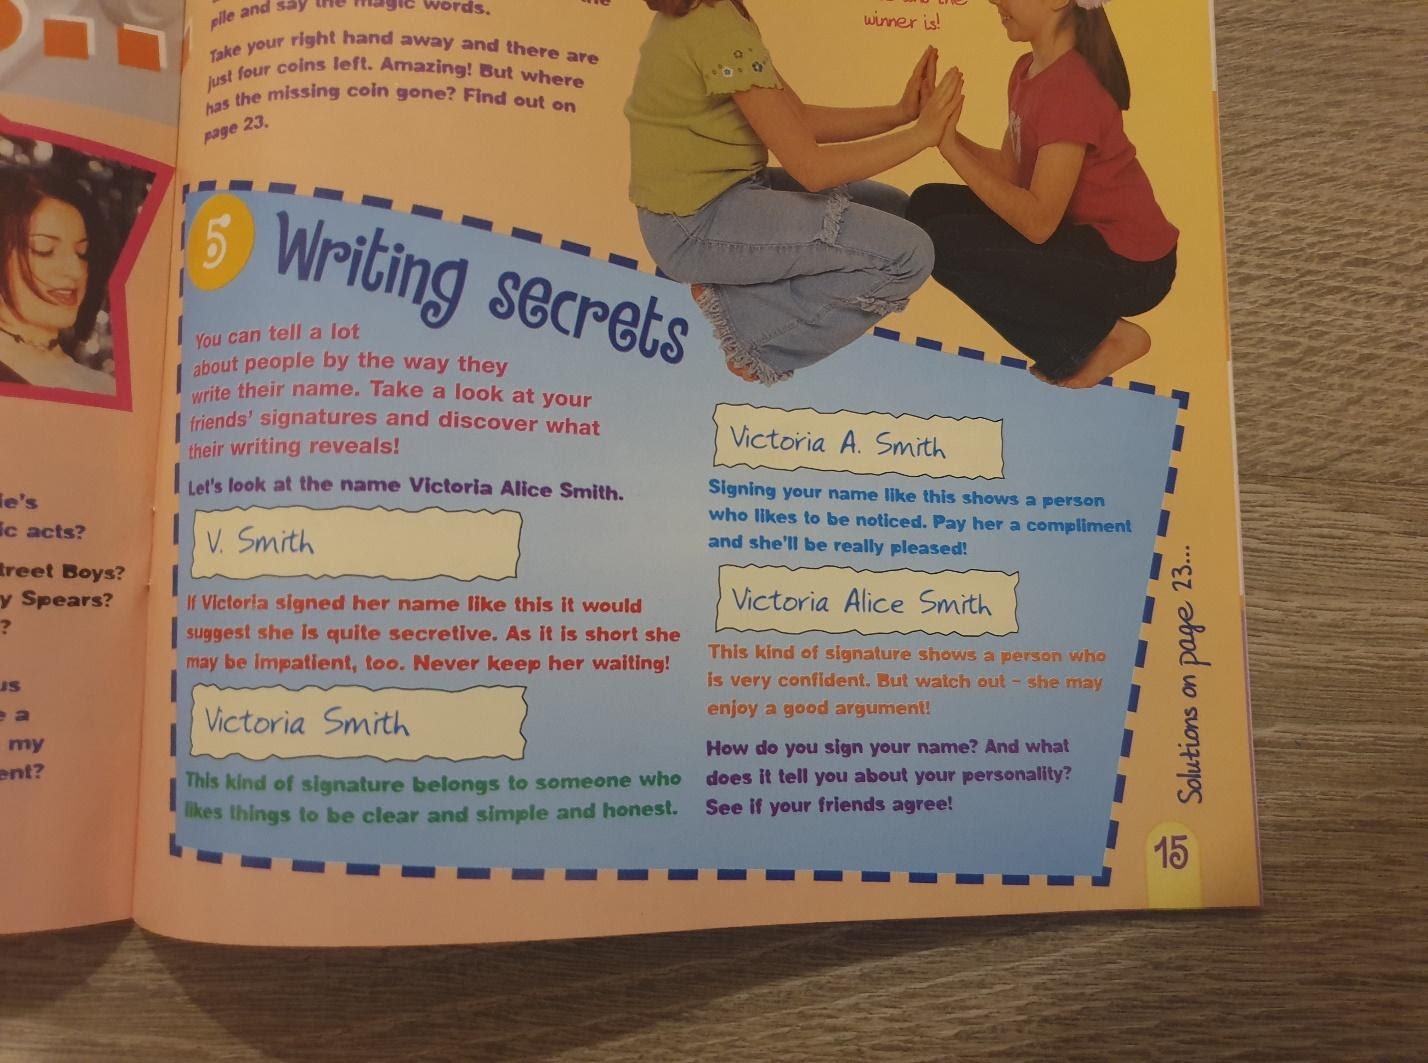 pile and say the magic words.
Take your right hand away and there are
just four coins left. Amazing! But where
has the missing coin gone? Find out on
page 23.
winner is!
5
Writing secrets
You can tell a lot
about people by the way they
write their name. Take a look at your
friends' signatures and discover what
their writing reveals!
Let's look at the name Victoria Alice Smith.
V. Smith
If Victoria signed her name like this it would
suggest she is quite secretive. As it is short she
may be impatient, too. Never keep her waiting!
Victoria Smith
This kind of signature belongs to someone who
likes things to be clear and simple and honest.
Victoria A. Smith
Signing your name like this shows a person
who likes to be noticed. Pay her a compliment
and she'll be really pleased!
Victoria Alice Smith
This kind of signature shows a person who
is very confident. But watch out – she may
enjoy a good argument!
How do you sign your name? And what
does it tell you about your personality?
See if your friends agree!
Solutions on page 23...
15
acts?
Boys?
Spears?
?
a
my